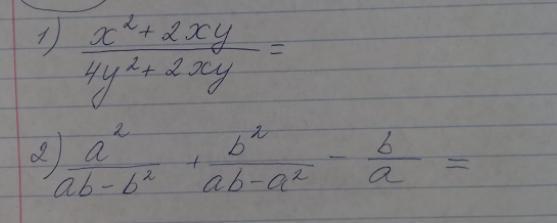 1) (x² + 2xy)/(4y² + 2xy) =
2) a²/(ab - b²) + b²/(ab - a²) - b/a =